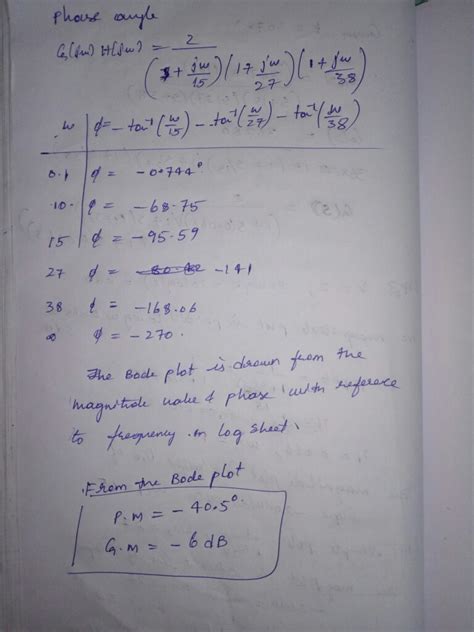 Phase angle
G(jω) H(jω) = 2 / (1 + jω/15) (1 + jω/27) (1 + jω/38)
ω φ = -tan⁻¹(ω/15) - tan⁻¹(ω/27) - tan⁻¹(ω/38)
0.1 φ = -0.744°
10. φ = -68.75
15 φ = -95.59
27 φ = -141
38 φ = -168.06
∞ φ = -270.
The Bode plot is drawn from the
magnitude value & phase with reference
to frequency in log sheet.
From the Bode plot
P.M = -40.5°.
G.M = -6 dB